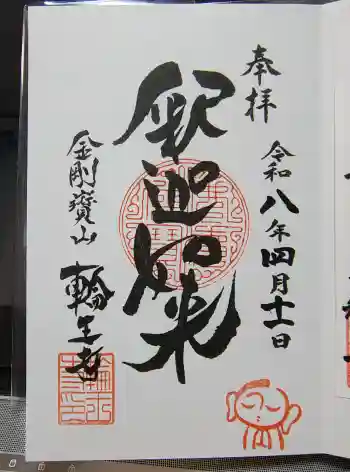 奉拝
令和八年四月十一日
釈迦如来
金剛寶山
輪王寺